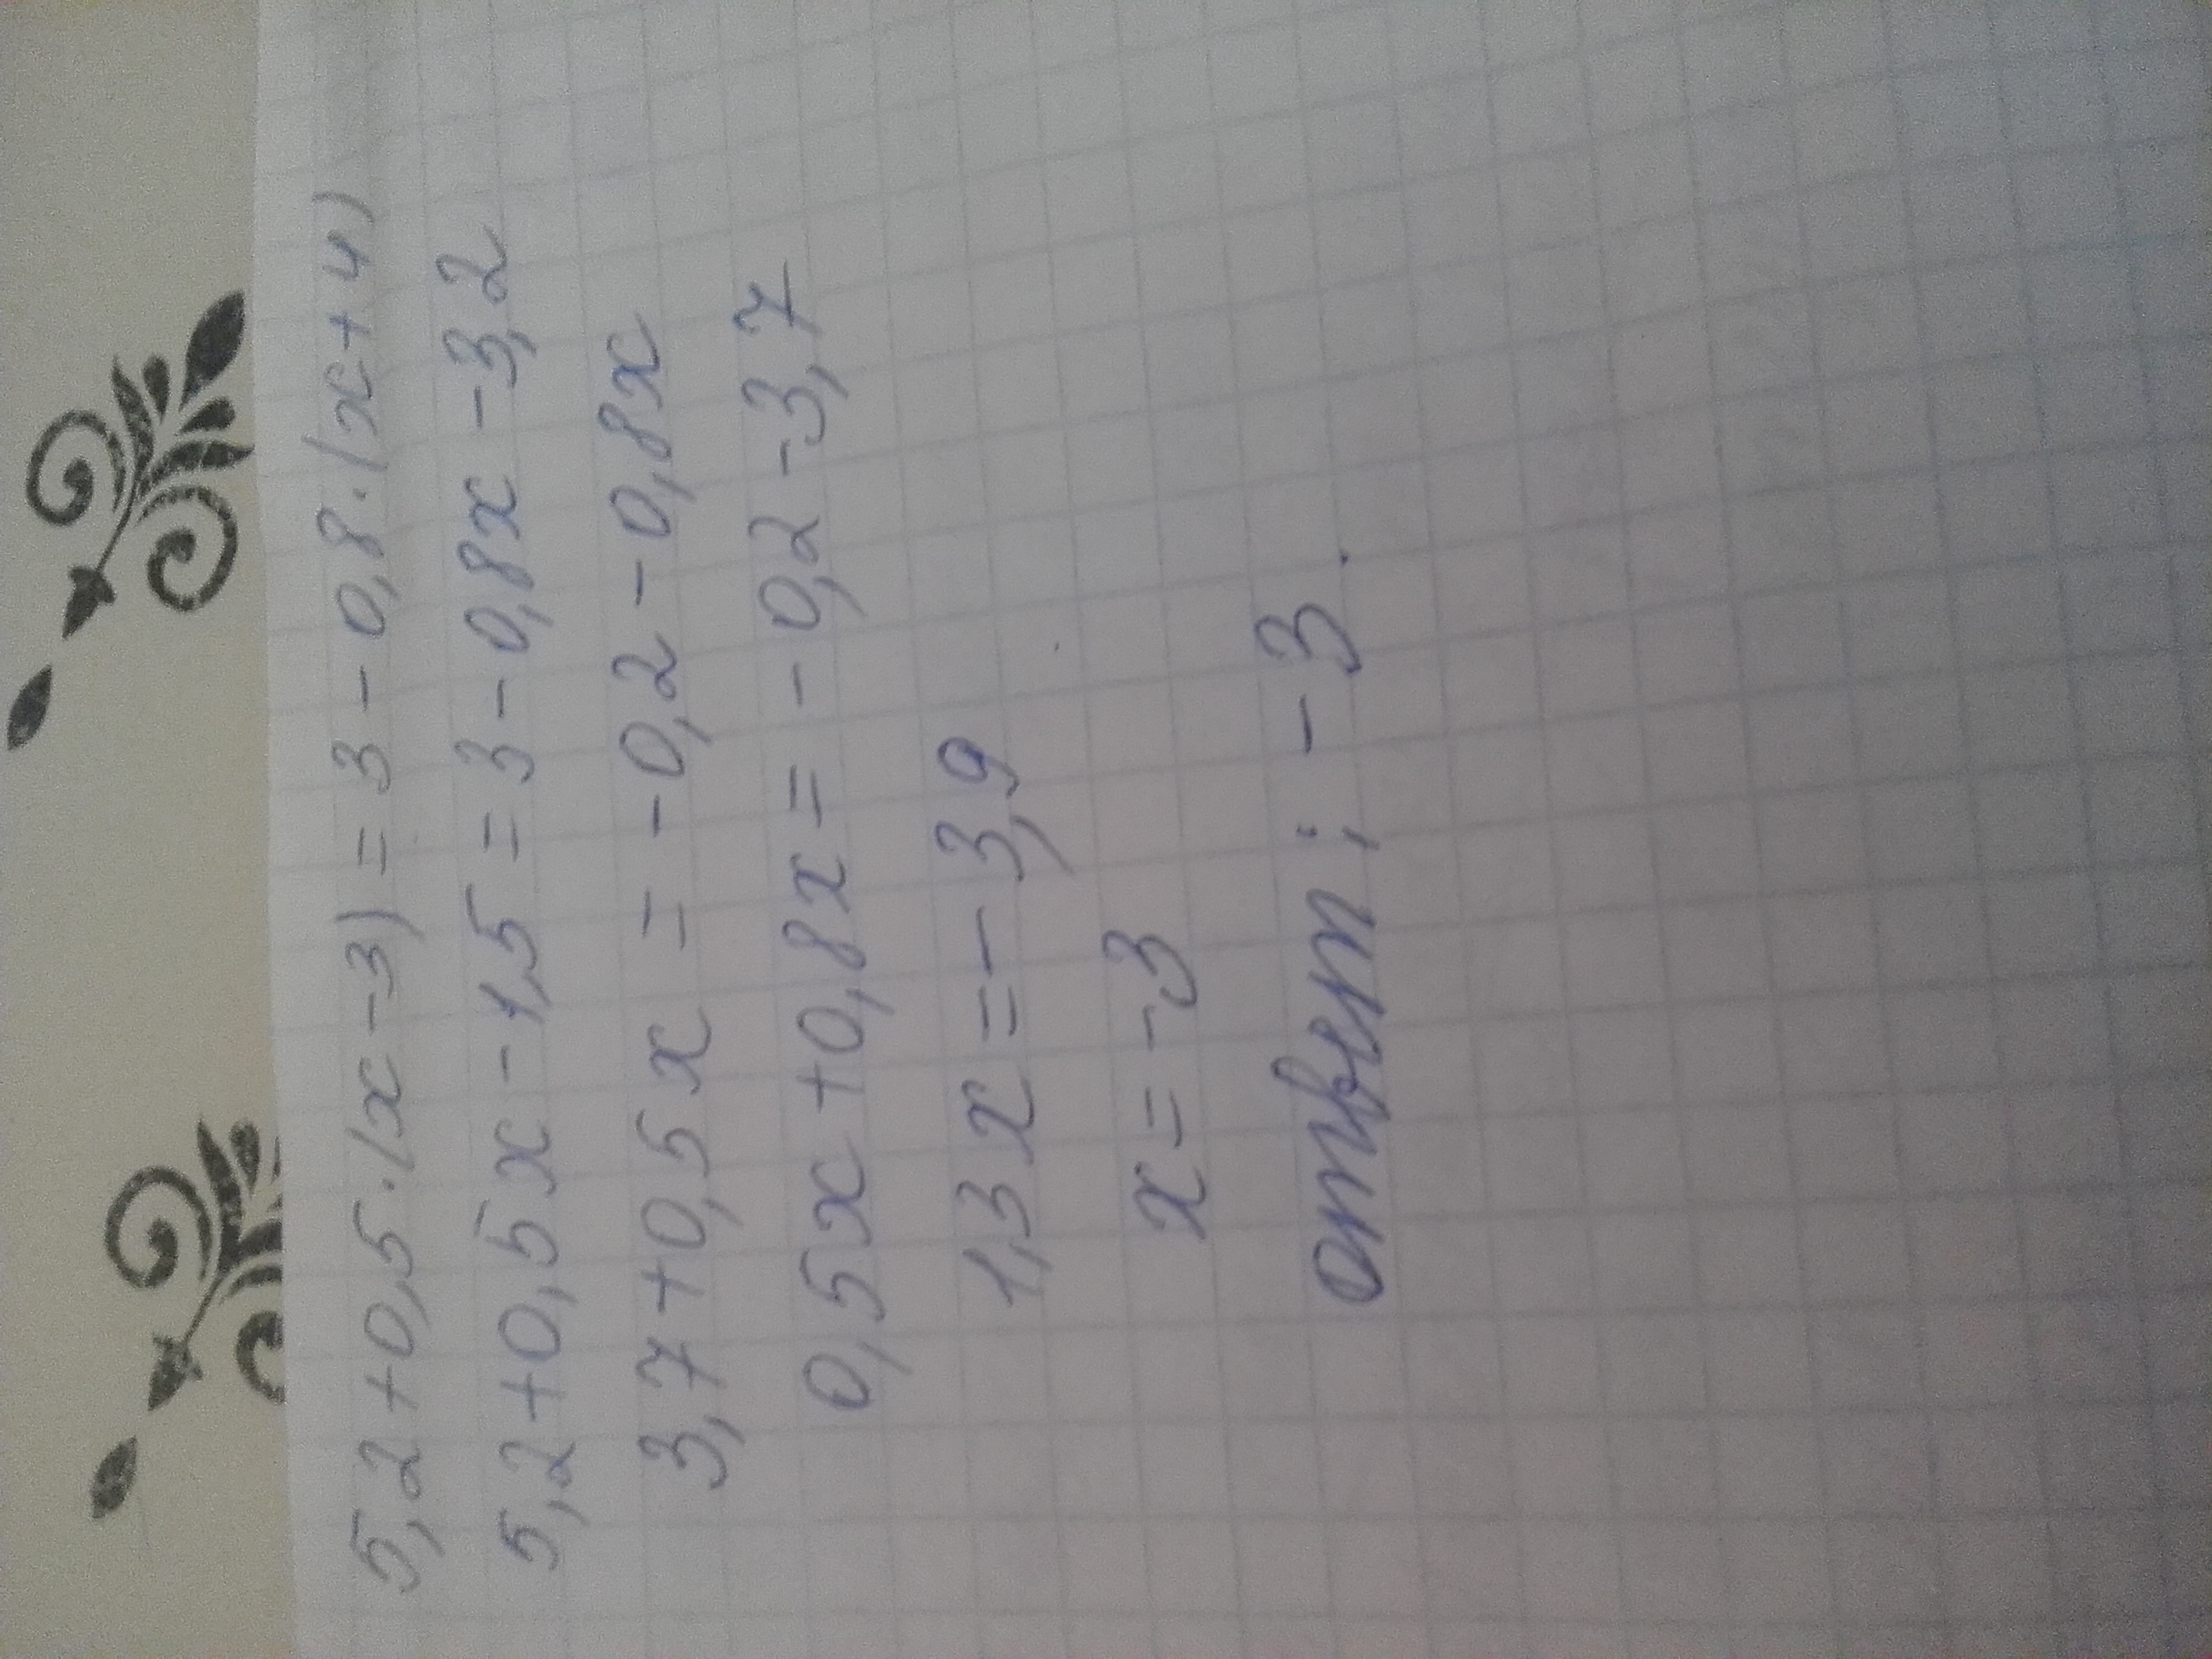 5,2+0,5·(x-3)=3-0,8·(x+4)
5,2+0,5x-1,5=3-0,8x-3,2
3,7+0,5x=-0,2-0,8x
0,5x+0,8x=-0,2-3,7
1,3x=-3,9
x=-3
ответ; -3.